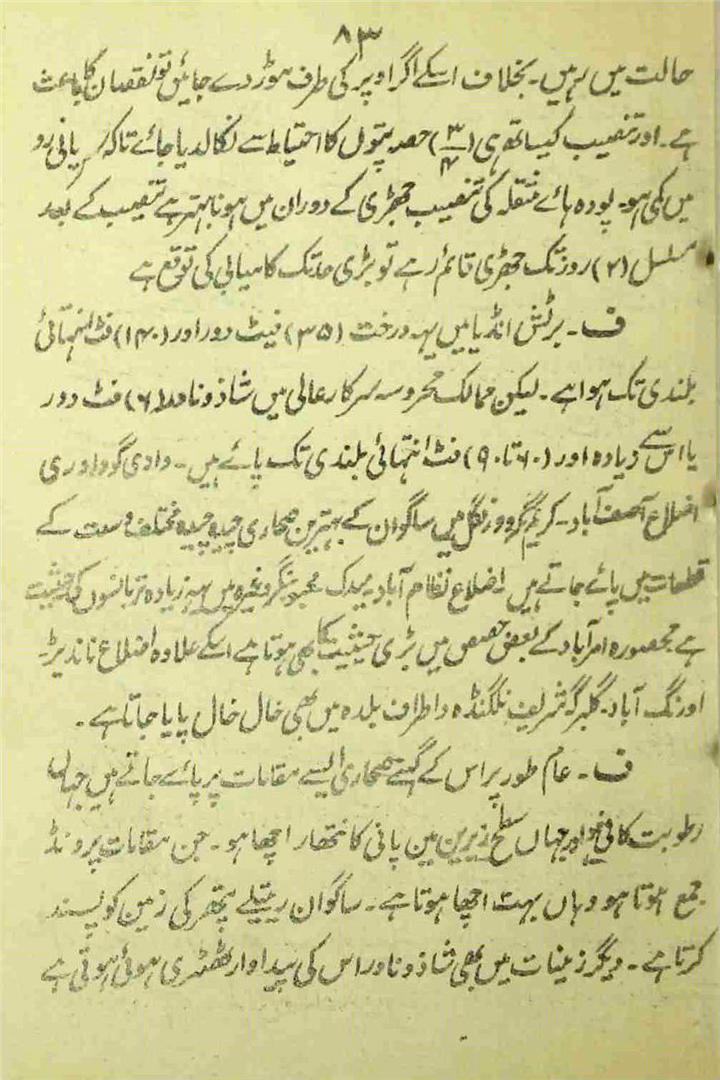 ۸۳
حالت میں رہیں۔ بخلاف اسکے اگر اوپر کی طرف موڑ دے جائیں تو نقصان کا باعث
ہے۔ اور تنصیب کیساتھ ہی (۳/۴) حصہ پتوں کا احتیاط سے نکالدیا جائے تاکہ سریانی رو
میں کمی ہو۔ پودہ ہائے منتقلہ کی تنصیب جھڑی کے دوران میں ہونا بہتر ہے تنصیب کے بعد
مسلسل (۲) روز تک جھڑی قائم رہے تو بڑی حد تک کامیابی کی توقع ہے
ف۔ برٹش انڈیا میں یہہ درخت (۳۵) فیٹ دور اور (۱۴۰) فٹ انتہائی
بلندی تک ہوا ہے۔ لیکن ممالک محروسہ سرکارعالی میں شاذ و نادر (۶) فٹ دور
یا اس سے زیادہ اور (۶۰ تا ۹۰) فٹ انتہائی بلندی تک پائے ہیں۔ وادی گوداوری
اضلاع آصف آباد۔ کریم نگر و ورنگل میں ساگوان کے بہترین صحاری چیدہ چیدہ مختلف وسعت کے
قطعات میں پائے جاتے ہیں اضلاع نظام آباد۔ میدک۔ محبوبنگر وغیرہ میں یہہ زیادہ تر بانسوں کی حیثیت
ہے محصورہ امرآباد کے بعض حصص میں بڑی حیثیت کا بھی ہوتا ہے اسکے علاوہ اضلاع ناندیڑ۔
اورنگ آباد۔ گلبرگہ شریف نلگنڈہ و اطراف بلدہ میں بھی خال خال پایا جاتا ہے۔
ف۔ عام طور پر اس کے گہنے صحاری ایسے مقامات پر پائے جاتے ہیں جہاں
رطوبت کافی ہو اور جہاں سطح زیرین میں پانی کا نتھار اچھا ہو۔ جن مقامات پر ونڈ
جمع ہوتا ہو وہاں بہت اچھا ہوتا ہے۔ ساگوان ریتیلے پتھر کی زمین کو پسند
کرتا ہے۔ دیگر زمینات میں بھی شاذ و نادر اس کی پیداوار ٹھٹری ہوئی ہوتی ہے